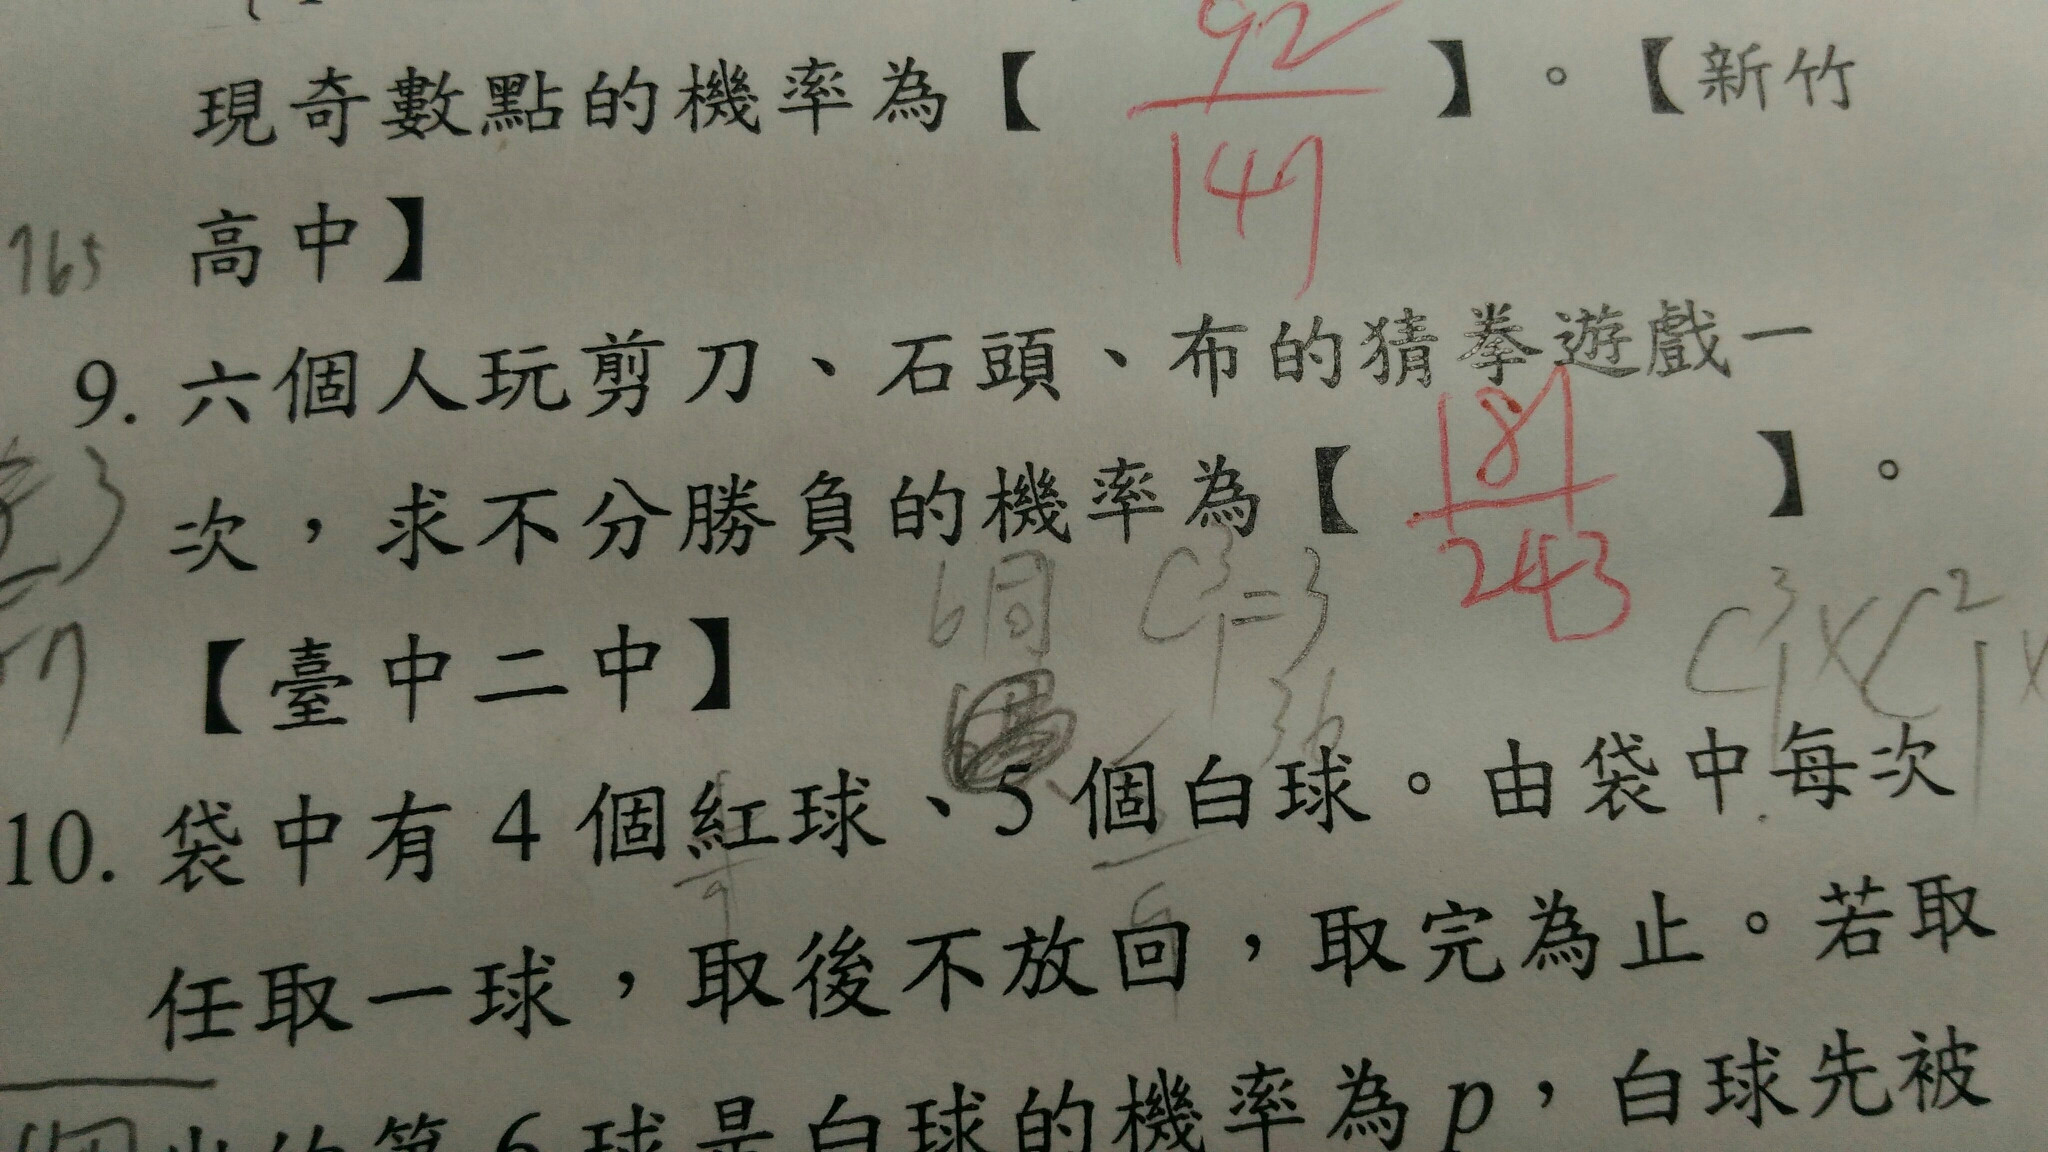 現奇數點的機率為【 92/147 】。【新竹
高中】
765
9. 六個人玩剪刀、石頭、布的猜拳遊戲一
次，求不分勝負的機率為【 181/243 】。
6同 C³₁=3
【臺中二中】
36
C³₁×C²₁×
10. 袋中有 4 個紅球、5 個白球。由袋中每次
任取一球，取後不放回，取完為止。若取
出的第 6 球是白球的機率為 p，白球先被